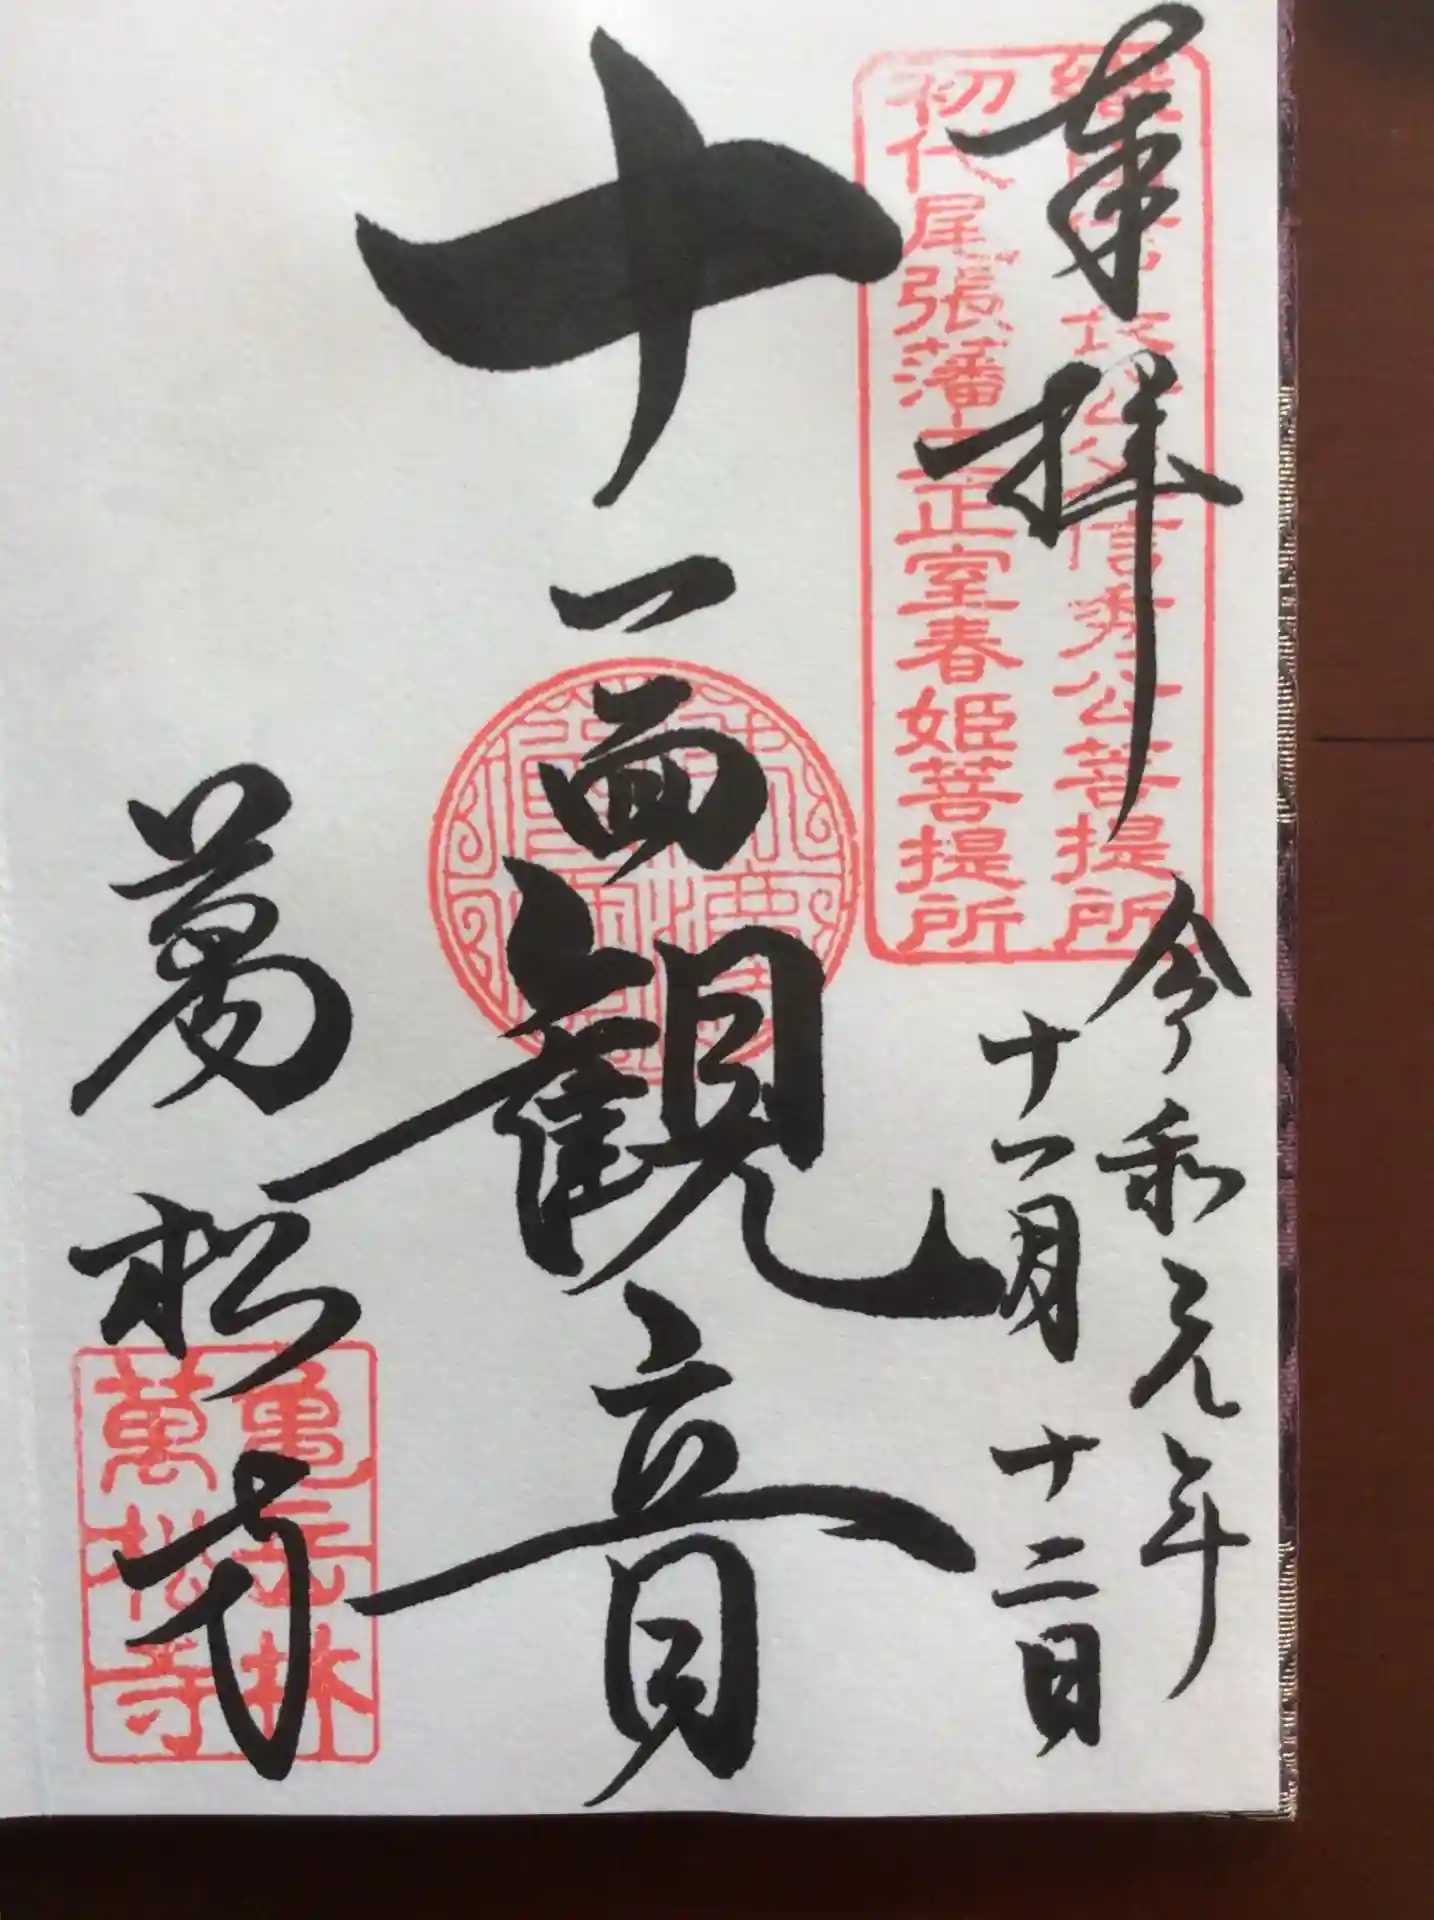 奉拝
令和元年
十一月十二日
信秀公菩提所
初代尾張藩主正室春姫菩提所
十一面観音
萬松寺
亀岳林
萬松寺